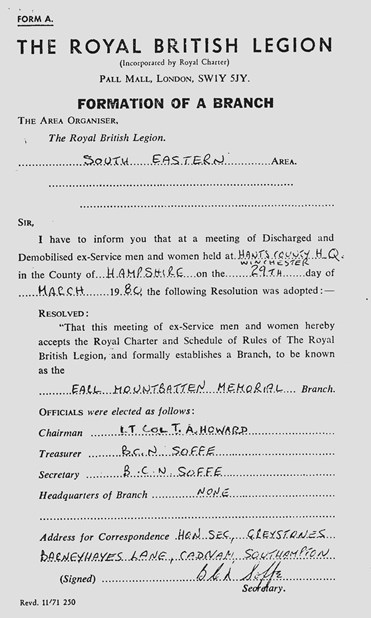 FORM A.
THE ROYAL BRITISH LEGION
(Incorporated by Royal Charter)
PALL MALL, LONDON, SW1Y 5JY.
FORMATION OF A BRANCH
THE AREA ORGANISER,
The Royal British Legion.
SOUTH EASTERN AREA.
SIR,
I have to inform you that at a meeting of Discharged and
Demobilised ex-Service men and women held at HANTS COUNTY H.Q.
WINCHESTER
in the County of HAMPSHIRE on the 29TH day of
MARCH 1980, the following Resolution was adopted:—
RESOLVED:
"That this meeting of ex-Service men and women hereby
accepts the Royal Charter and Schedule of Rules of The Royal
British Legion, and formally establishes a Branch, to be known
as the
EARL MOUNTBATTEN MEMORIAL Branch.
OFFICIALS were elected as follows:
Chairman LT COL T. A. HOWARD
Treasurer B.C.N. SOFFE
Secretary B.C.N. SOFFE
Headquarters of Branch NONE
Address for Correspondence HON SEC, GREYSTONES
BARNEYHAYES LANE, CADNAM, SOUTHAMPTON
(Signed) BCN Soffe
Secretary.
Revd. 11/71 250